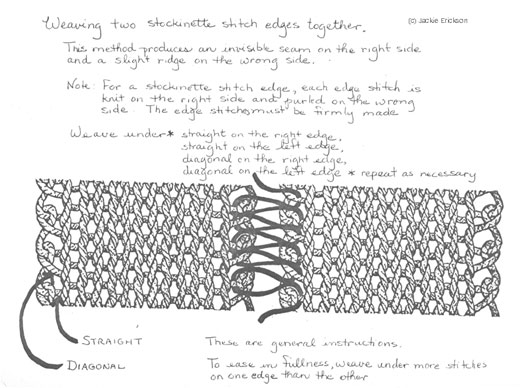 (c) Jackie Erickson
Weaving two stockinette stitch edges together.
This method produces an invisible seam on the right side
and a slight ridge on the wrong side.
Note: For a stockinette stitch edge, each edge stitch is
knit on the right side and purled on the wrong
side. The edge stitches must be firmly made
Weave under * straight on the right edge,
straight on the left edge,
diagonal on the right edge,
diagonal on the left edge * repeat as necessary
STRAIGHT
DIAGONAL
These are general instructions.
To ease in fullness, weave under more stitches
on one edge than the other